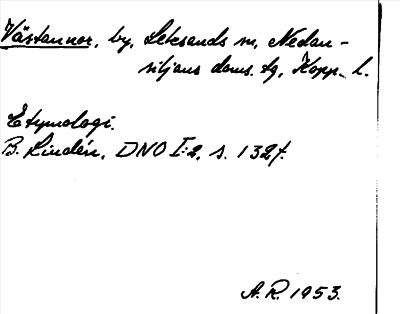 Västannor, by, Leksands sn, Nedan-
siljans doms. tg, Kopp. l.
Etymologi.
B. Lindén, DNO I:2, s. 132 f.
A. R. 1953.